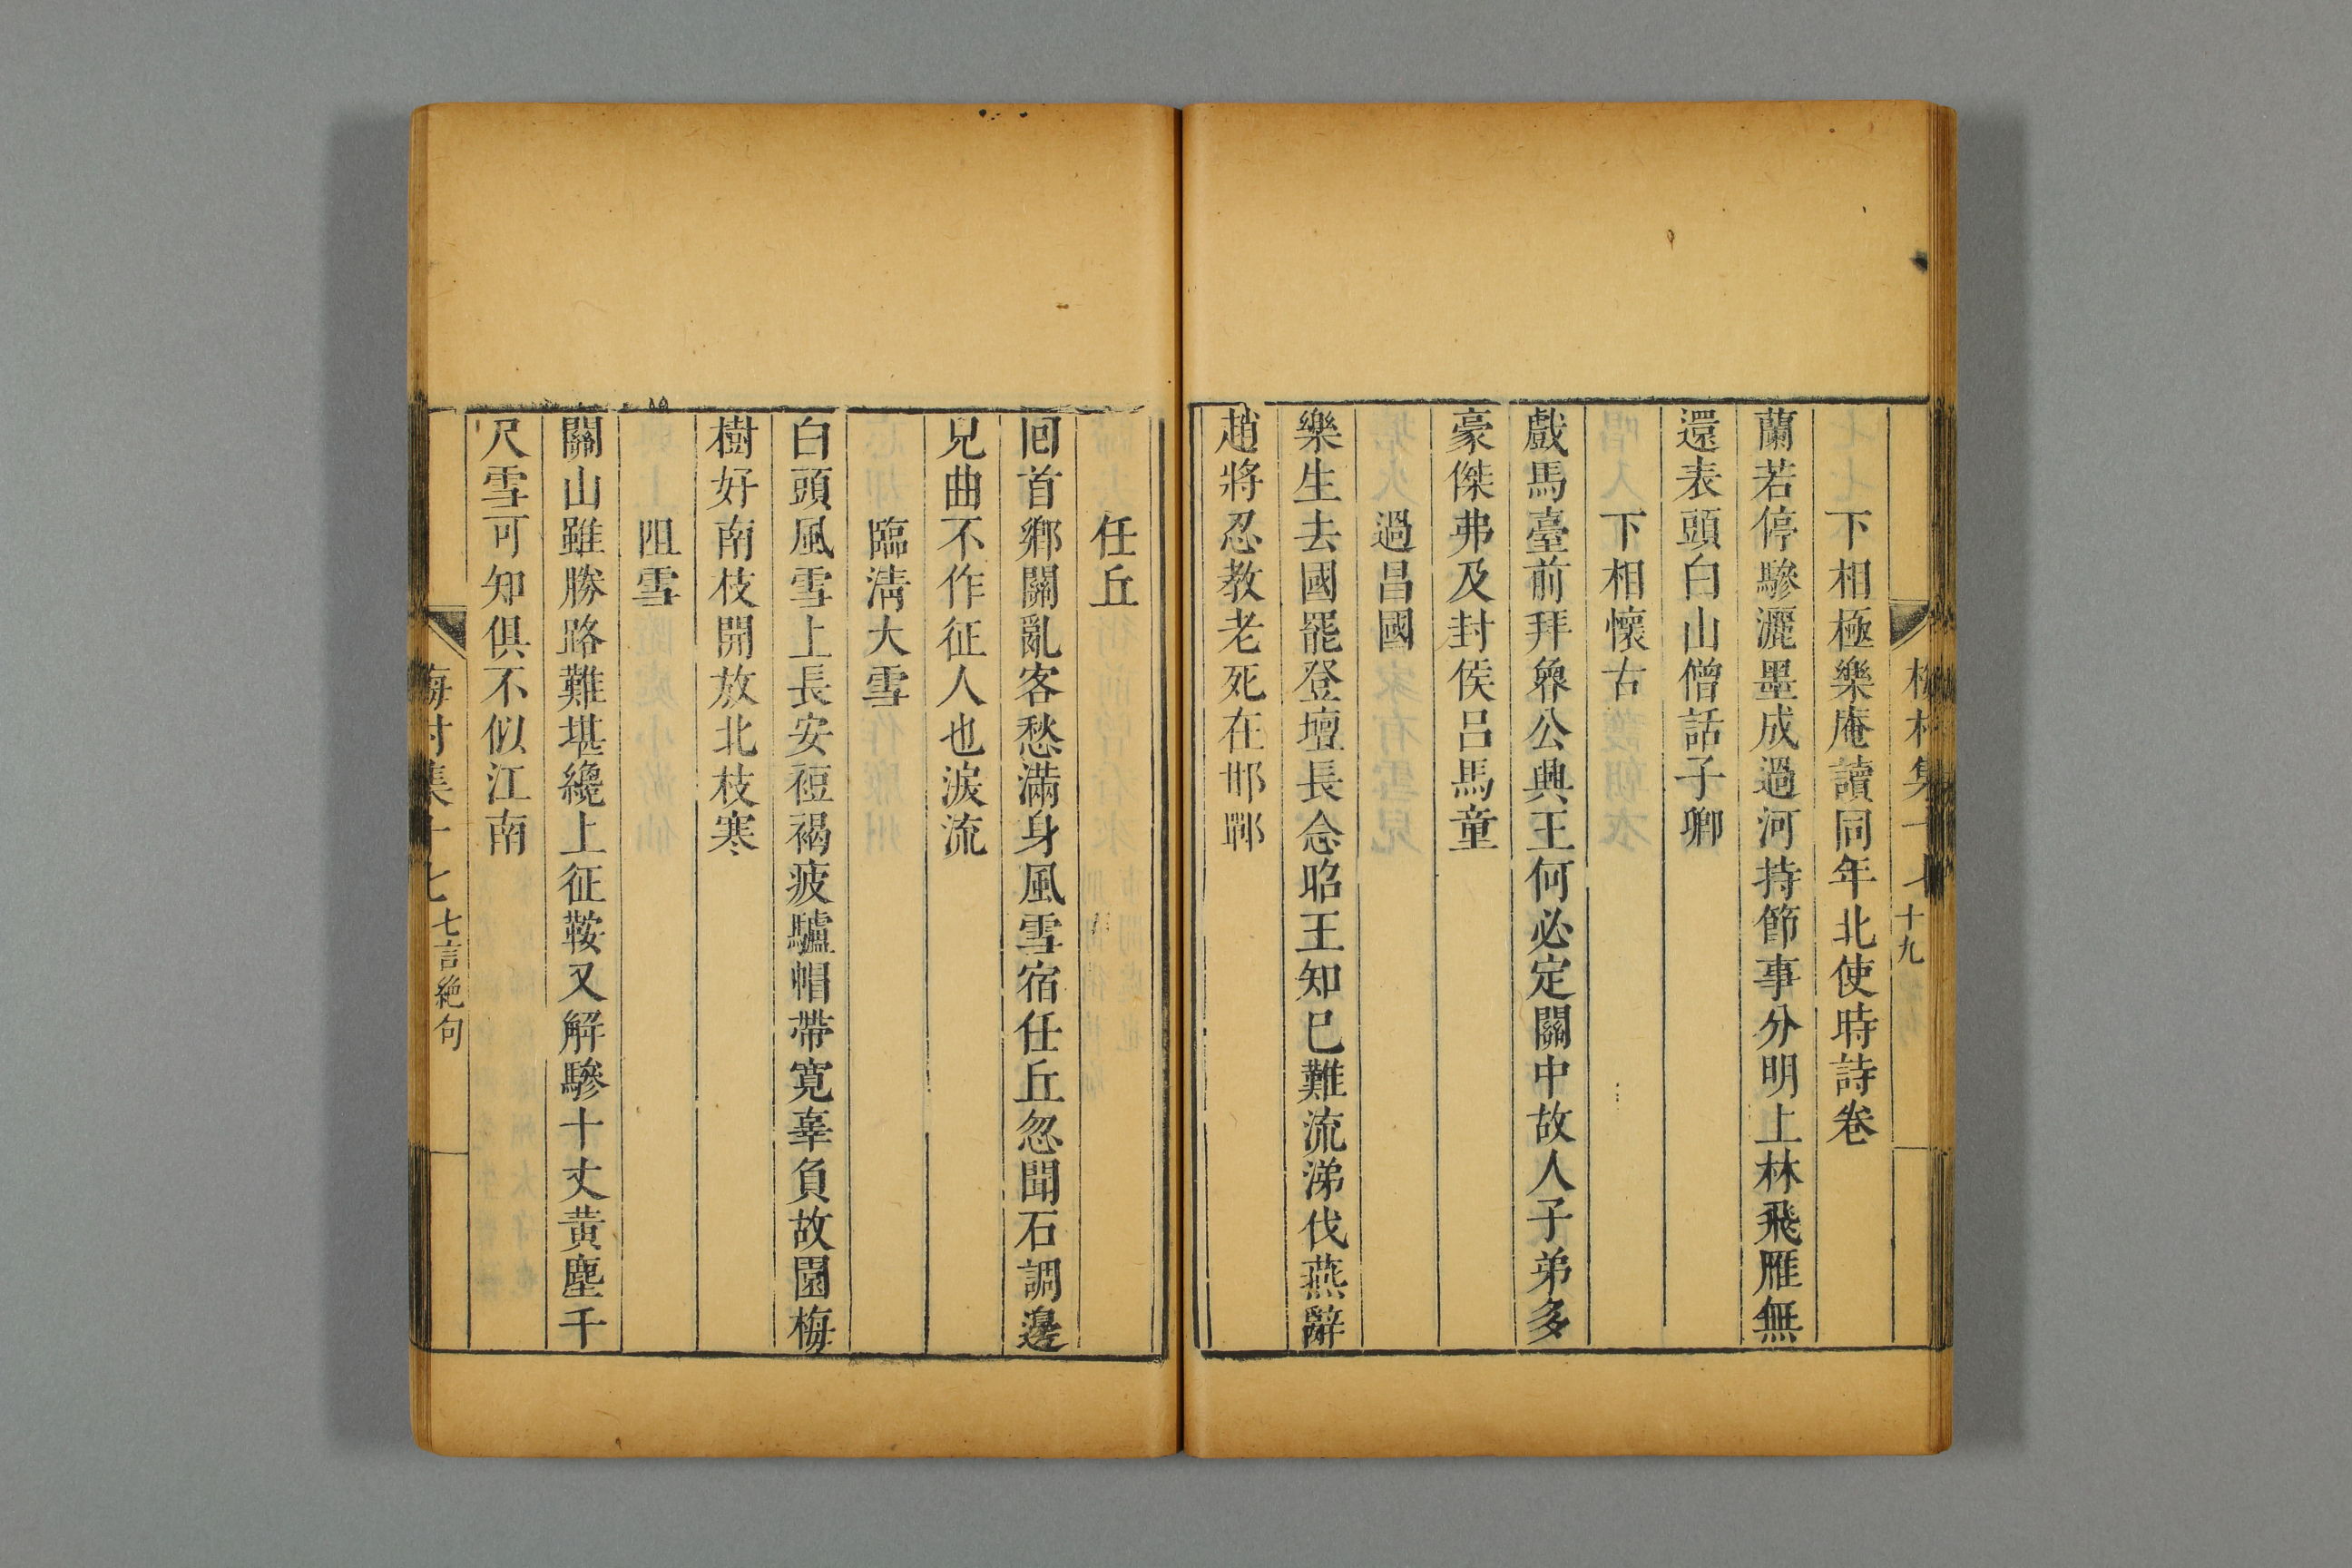 梅村集十七 十九
下相極樂庵讀同年北使時詩卷
蘭若停驂灑墨成過河持節事分明上林飛雁無
還表頭白山僧話子卿
下相懷古
戲馬臺前拜魯公興王何必定關中故人子弟多
豪傑弗及封侯呂馬童
過昌國
樂生去國罷登壇長念昭王知已難流涕伐燕辭
趙將忍教老死在邯鄲
任丘
回首鄉關亂客愁滿身風雪宿任丘忽聞石調邊
兒曲不作征人也淚流
臨淸大雪
白頭風雪上長安裋褐疲驢帽帶寬辜負故園梅
樹好南枝開放北枝寒
阻雪
關山雖勝路難堪纔上征鞍又解驂十丈黃塵千
尺雪可知俱不似江南
梅村集十七 七言絶句